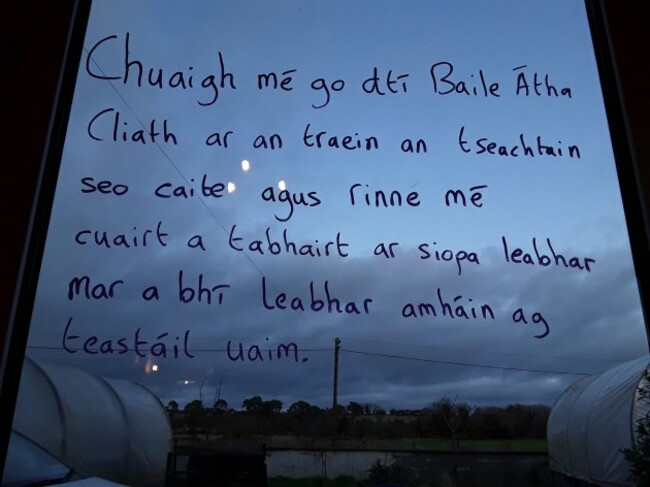 Chuaigh mē go dtī Baile Ātha
Cliath ar an traein an tseachtain
seo caite agus rinne mē
cuairt a tabhairt ar siopa leabhar
mar a bhī leabhar amháin ag
teastáil uaim.